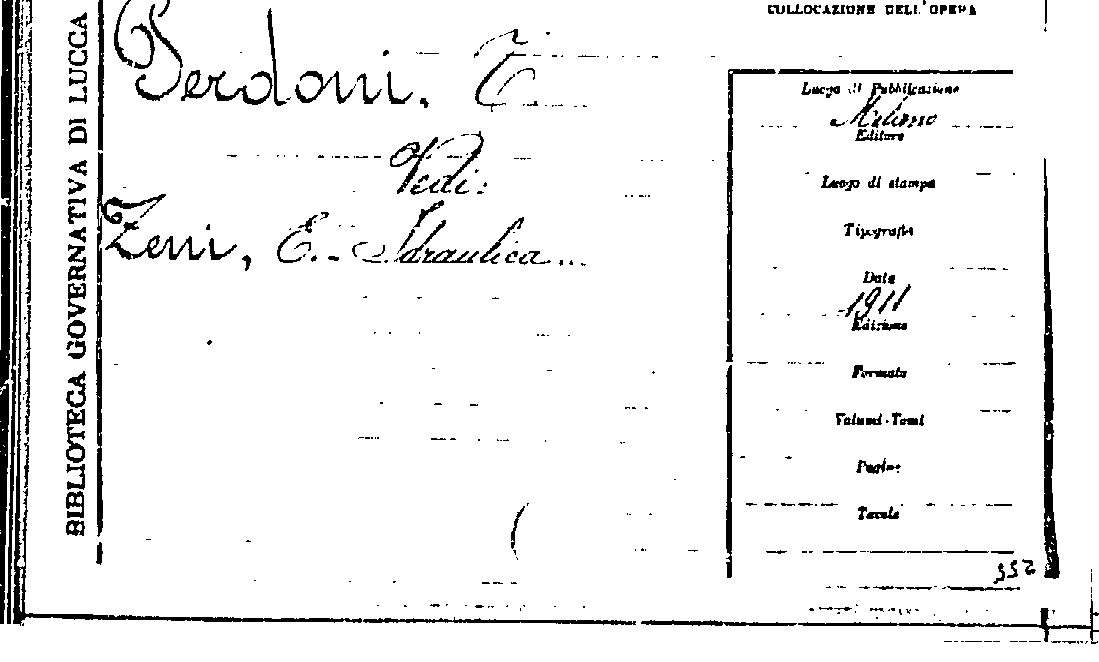 COLLOCAZIONE DELL'OPERA
BIBLIOTECA GOVERNATIVA DI LUCCA
Perdoni, T.
Vedi:
Zeni, E. - Idraulica...
Luogo di Pubblicazione
Milano
Editore
Luogo di stampa
Tipografia
Data
1911
Edizione
Formato
Volumi-Tomi
Pagine
Tavole